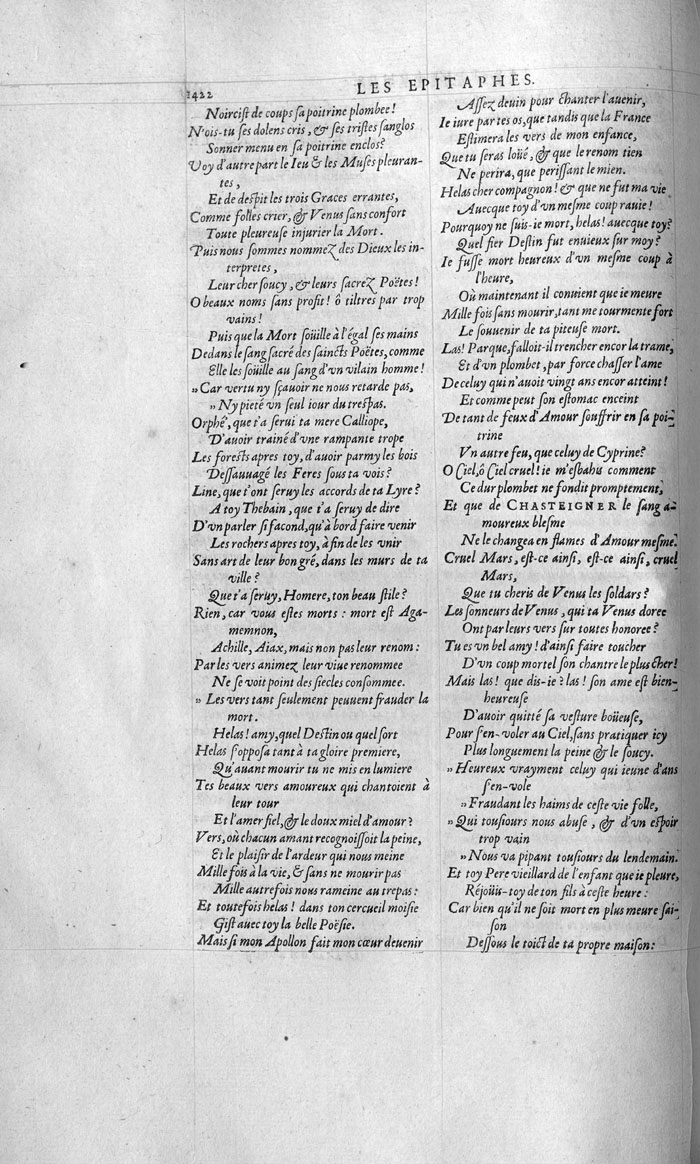 1422
LES EPITAPHES.
Noircist de coups sa poitrine plombee!
N'ois-tu ses dolens cris, & ses tristes sanglos
Sonner menu en sa poitrine enclos?
Voy d'autre part le Ieu & les Muses pleuran-
tes,
Et de despit les trois Graces errantes,
Comme folles crier, & Venus sans confort
Toute pleureuse iniurier la Mort.
Puis nous sommes nommez des Dieux les in-
terpretes,
Leur cher soucy, & leurs sacrez Poëtes!
O beaux noms sans profit! ô tiltres par trop
vains!
Puis que la Mort soüille à l'égal ses mains
Dedans le sang sacré des saincts Poëtes, comme
Elle les soüille au sang d'vn vilain homme!
» Car vertu ny sçauoir ne nous retarde pas,
» Ny pieté vn seul iour du trespas.
Orphé, que t'a serui ta mere Calliope,
D'auoir trainé d'vne rampante trope
Les forests apres toy, d'auoir parmy les bois
Dessauuagé les Feres sous ta vois?
Line, que t'ont seruy les accords de ta Lyre?
A toy Thebain, que t'a seruy de dire
D'vn parler si facond, qu'à bord faire venir
Les rochers apres toy, à fin de les vnir
Sans art de leur bon gré, dans les murs de ta
ville?
Que t'a seruy, Homere, ton beau stile?
Rien, car vous estes morts: mort est Aga-
memnon,
Achille, Aiax, mais non pas leur renom:
Par les vers animez leur viue renommee
Ne se voit point des siecles consommee.
» Les vers tant seulement peuuent frauder la
mort.
Helas! amy, quel Destin ou quel sort
Helas s'opposa tant à ta gloire premiere,
Qu'auant mourir tu ne mis en lumiere
Tes beaux vers amoureux qui chantoient à
leur tour
Et l'amer fiel, & le doux miel d'amour?
Vers, où chacun amant recognoissoit la peine,
Et le plaisir de l'ardeur qui nous meine
Mille fois à la vie, & sans ne mourir pas
Mille autrefois nous rameine au trepas:
Et toutefois helas! dans ton cercueil moisie
Gist auec toy la belle Poësie.
Mais si mon Apollon fait mon cœur deuenir
Assez deuin pour chanter l'auenir,
Ie iure par tes os, que tandis que la France
Estimera les vers de mon enfance,
Que tu seras loüé, & que le renom tien
Ne perira, que perissant le mien.
Helas cher compagnon! & que ne fut ma vie
Auecque toy d'vn mesme coup rauie!
Pourquoy ne suis-ie mort, helas! auecque toy?
Quel fier Destin fut enuieux sur moy?
Ie fusse mort heureux d'vn mesme coup à
l'heure,
Où maintenant il conuient que ie meure
Mille fois sans mourir, tant me tourmente fort
Le souuenir de ta piteuse mort.
Las! Parque, falloit-il trencher encor la trame,
Et d'vn plombet, par force chasser l'ame
De celuy qui n'auoit vingt ans encor atteint!
Et comme peut son estomac enceint
De tant de feux d'Amour souffrir en sa poi-
trine
Vn autre feu, que celuy de Cyprine?
O Ciel, ô Ciel cruel! ie m'esbahis comment
Ce dur plombet ne fondit promptement,
Et que de CHASTEIGNER le sang a-
moureux blesme
Ne le changea en flames d'Amour mesme.
Cruel Mars, est-ce ainsi, est-ce ainsi, cruel
Mars,
Que tu cheris de Venus les soldars?
Les sonneurs de Venus, qui ta Venus doree
Ont par leurs vers sur toutes honoree?
Tu es vn bel amy! d'ainsi faire toucher
D'vn coup mortel son chantre le plus cher!
Mais las! que dis-ie? las! son ame est bien-
heureuse
D'auoir quitté sa vesture boüeuse,
Pour s'en-voler au Ciel, sans pratiquer icy
Plus longuement la peine & le soucy.
» Heureux vrayment celuy qui ieune d'ans
s'en-vole
» Fraudant les haims de ceste vie folle,
» Qui tousiours nous abuse, & d'vn espoir
trop vain
» Nous va pipant tousiours du lendemain.
Et toy Pere vieillard de l'enfant que ie pleure,
Réjoüis-toy de ton fils à ceste heure:
Car bien qu'il ne soit mort en plus meure sai-
son
Dessous le toict de ta propre maison: